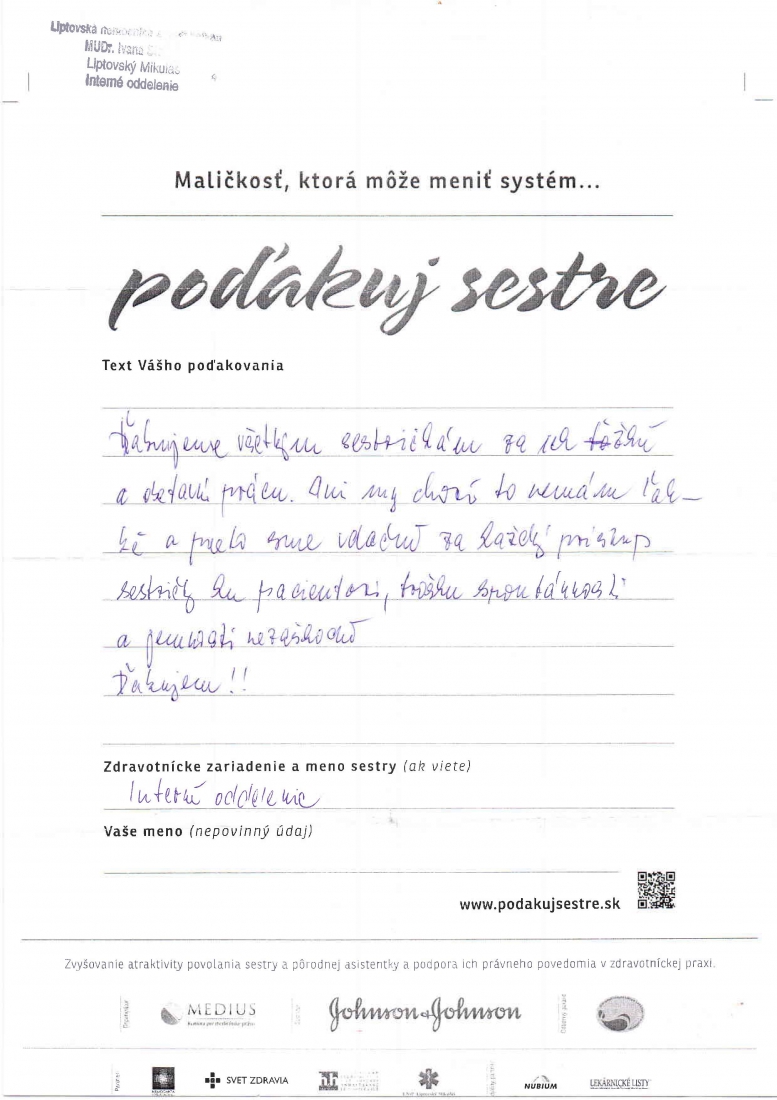 Liptovská nemocnica
MUDr. Ivana
Liptovský Mikuláš
Interné oddelenie
Maličkosť, ktorá môže meniť systém...
poďakuj sestre
Text Vášho poďakovania
Ďakujeme všetkým sestričkám za ich
a prácu. Ani my chorí to nemáme ľah-
ké a preto sme vďační za každý prístup
sestričky ku pacientovi, trošku spontánnosti
a jemnosti nezaškodí
Ďakujem!!
Zdravotnícke zariadenie a meno sestry (ak viete)
Interné oddelenie
Vaše meno (nepovinný údaj)
www.podakujsestre.sk
Zvyšovanie atraktivity povolania sestry a pôrodnej asistentky a podpora ich právneho povedomia v zdravotníckej praxi.
MEDIUS Johnson&Johnson
SVET ZDRAVIA NUBIUM LEKÁRNICKÉ LISTY